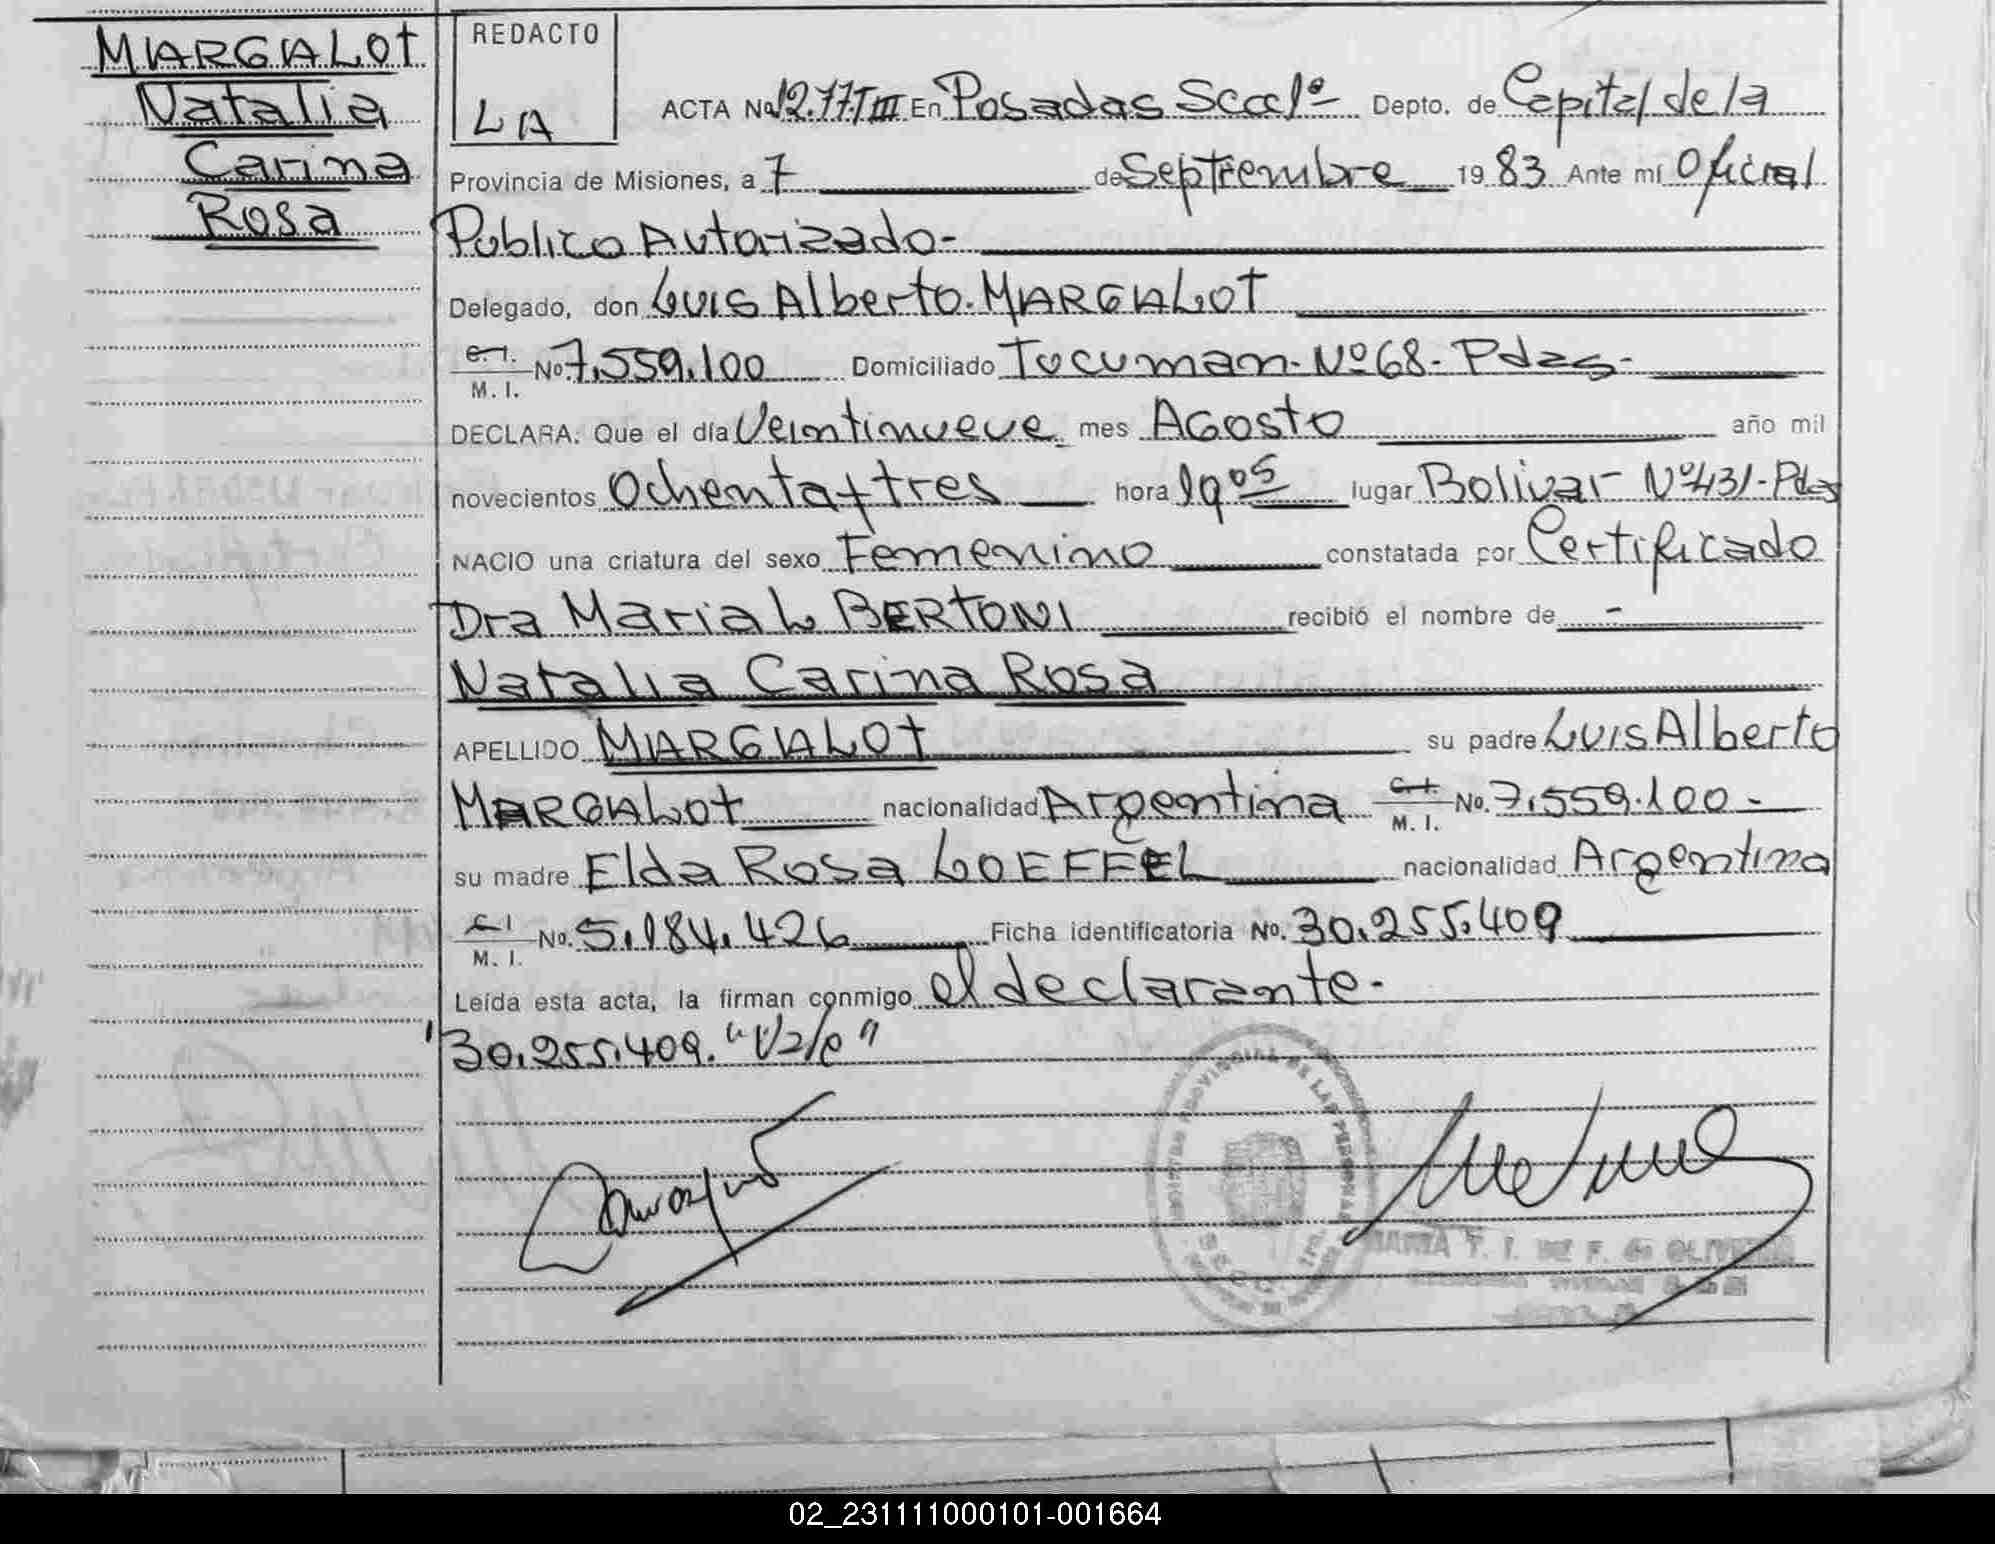 MARGALOt
Natalia
Carina
Rosa
REDACTO
LA
ACTA No 1277.TIII En Posadas Secc 1ª Depto. de Capital de la
Provincia de Misiones, a 7 de Septiembre 1983 Ante mí Oficial
Público Autorizado-
Delegado, don Luis Alberto. MARGALOT
C. I.
M. I. No. 7.559.100 Domiciliado Tucuman- Nº 68- Pdas-
DECLARA: Que el día Veintinueve mes AGosto año mil
novecientos Ochenta y tres hora 19 05 lugar Bolivar Nº 431- Pdas
NACIO una criatura del sexo Femenino constatada por Certificado
Dra Maria L BERTONI recibió el nombre de -
Natalia Carina Rosa
APELLIDO MARGALOt su padre Luis Alberto
MARGALOt nacionalidad Argentina C. I.
M. I. No. 7.559.100-
su madre Elda Rosa LOEFFEL nacionalidad Argentina
C. I.
M. I. No. 5.184.426 Ficha identificatoria No. 30.255.409
Leída esta acta, la firman conmigo el declarante-
30.255.409. "Vale"
REGISTRO PROVINCIAL DE LAS PERSONAS
MARIA T. I. DE F. de OLIVEIRA
02_231111000101-001664